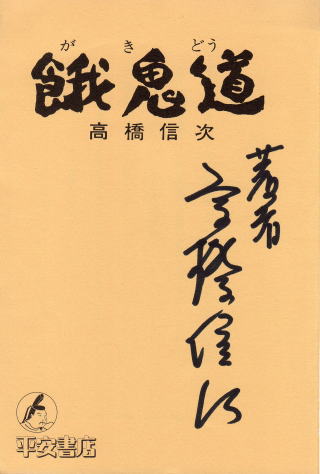 がきどう
餓鬼道
高橋信次
著者
高橋信次
平安書店